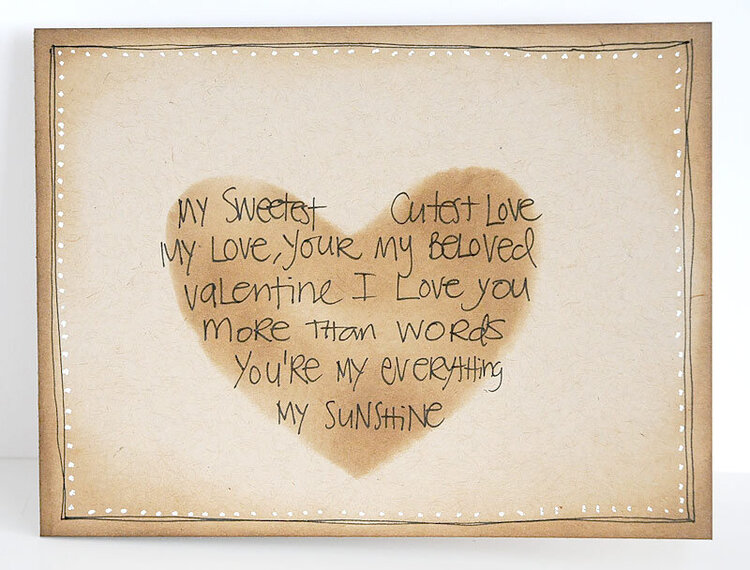 My Sweetest Cutest Love
My Love, your my Beloved
valentine I Love you
more than words
You're my everything
my sunshine